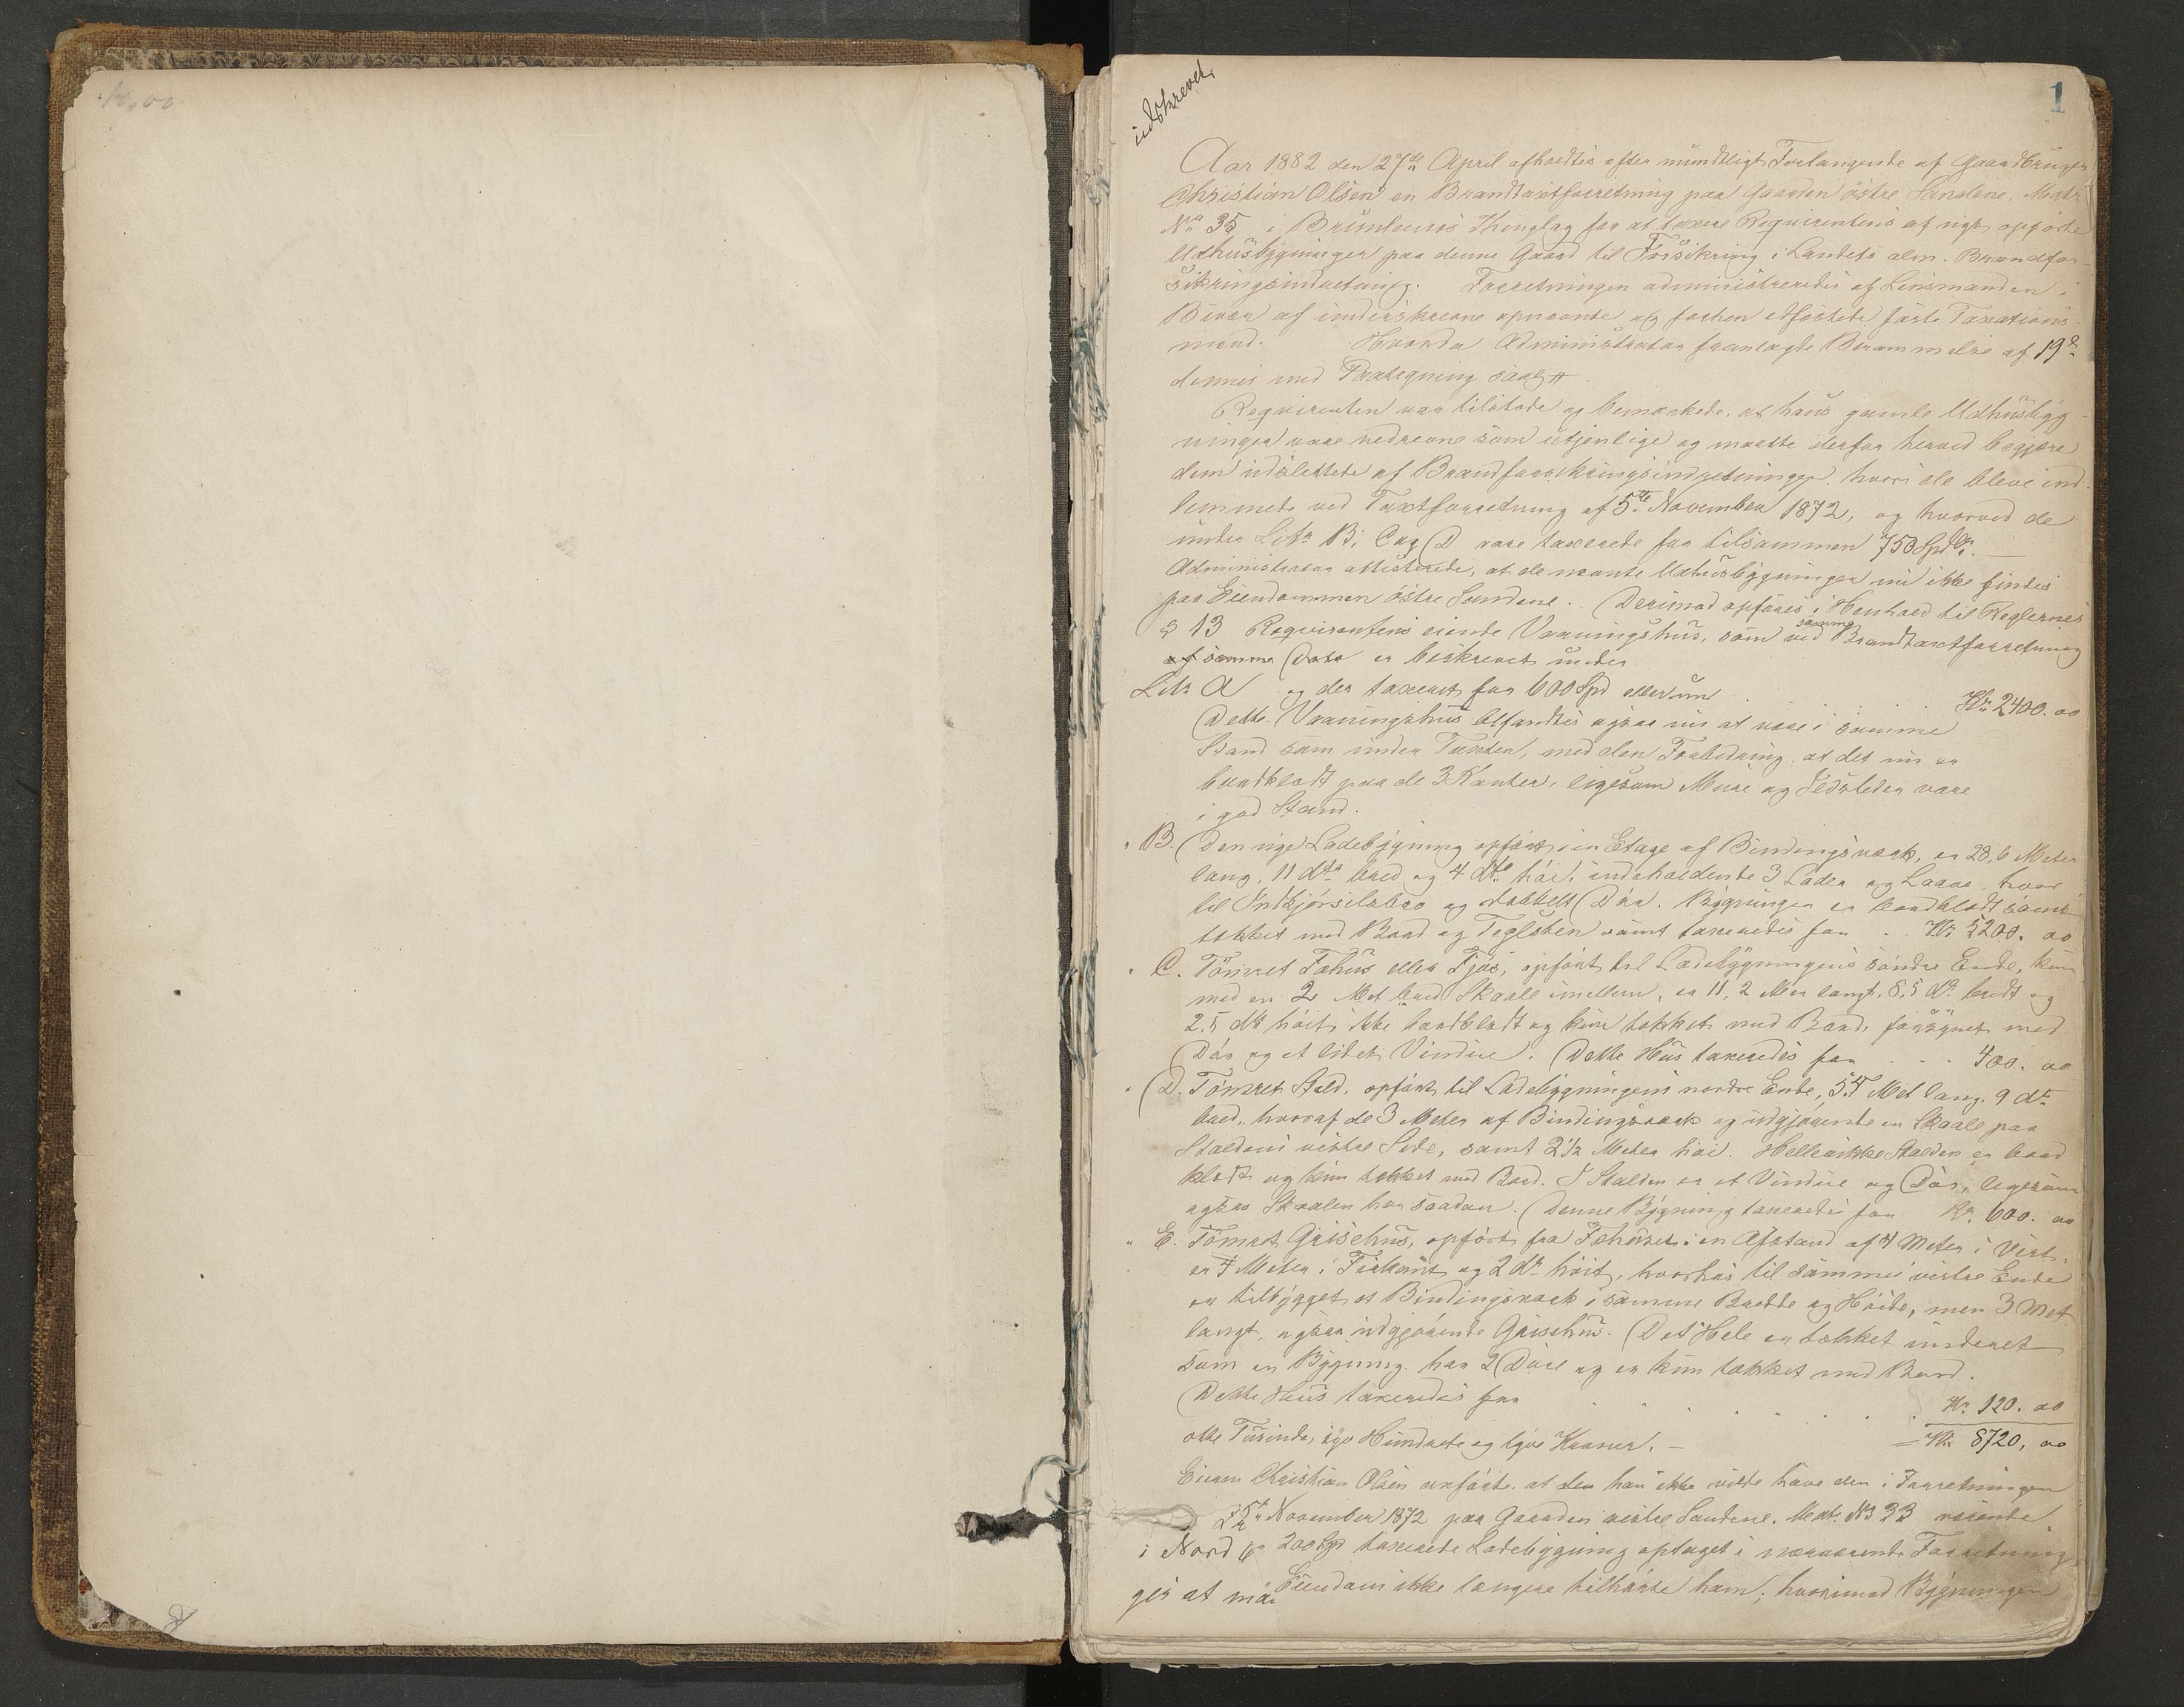 10,00
udskrevet
1
Aar 1882 den 27de April afholdtes efter mundtligt Forlangende af Gaardbruger
Christian Olsen en Brandtaxtforretning paa Gaarden östre Sandene, Matr
No 35 i Brunlanes Thinglag for at taxere Requirentens af nyt opförte
Udhusbygninger paa denne Gaard til Forsikring i Landets alm. Brandfor-
sikringsindretning. Forretningen administreredes af Lensmanden i
Bivær af underskrevne opnævnte og forhen edfæstede faste Taxations
mænd. Hvorda Administrator fremlagde Berammelse af 19de
dennes med Paategning saal.
Requirenten var tilstede og bemærkede, at hans gamle Udhusbyg
ninger vare nedrevne som utjenlige og maatte derfor herved begjære
dem udslettede af Brandforsikringsindretningen, hvori de bleve ind
lemmede ved Taxtforretning af 5te November 1872, og hvorved de
under Litr. B, C og D vare taxerede for tilsammen 750 Spdlr. —
Administrator attesterede, at de nævnte Udhusbygninger nu ikke findes
paa Eiendommen östre Sandene. Derimod opföres i Henhold til Reglernes
§ 13 Requirentens eiende Vaaningshus, som ved samme Brandtaxtforretning
af samme Dato er beskrevet under
Litr A og der taxeret for 600 Spd eller nu Kr. 2400. 00
Dette Vaaningshus befandtes ogsaa nu at være i samme
Stand som under Taxten, med den Forbedring, at det nu er
bordklædt paa de 3 Kanter, ligesom Mure og Ildsteder vare
i god Stand.
" B. Den nye Ladebygning opfört i en Etage af Bindingsværk, er 28,6 Meter
lang, 11 dto bred og 4 dto höi, indeholdende 3 Lader og Laave, hvor
til Indkjörselsbro og dobbelt Dör. Bygningen er bordklædt samt
tækket med Bord og Teglsten samt taxeredes for Kr. 5200. 00
" C. Tömret Fæhus eller Fjös, opfört til Ladebygningens söndre Ende, kun
med en 2 Met bred Skaale imellem, er 11,2 Meter langt, 8,5 do bredt og
2,5 do höit, ikke bordklædt og kun tækket med Bord, forsynet med
Dör og et lidet Vindue. Dette Hus taxeredes for 400. 00
" D. Tömret Stald, opfört til Ladebygningens nordre Ende, 5,4 Met lang, 9 do
bred, hvoraf de 3 Meter af Bindingsværk og udgjörende en Skaale paa
Staldens vestre Side, samt 2½ Meter höi. Heller ikke Stalden er bord
klædt og kun tækket med Bord. I Stalden er et Vindue og Dör, ligesom
ogsaa Skaalen har saadan. Denne Bygning taxeredes for Kr. 600. 00
" E. Tömret Grisehus, opfört fra Fæhuset i en Afstand af 4 Meter i Vest,
er 4 Meter i Firkant og 2 do höit, hvorhos til sammes vestre Ende
er tilbygget et Bindingsværk i samme Bredde og Höide, men 3 Met
langt, ogsaa udgjörende Grisehus. Det Hele er tækket under et
som en Bygning, har 2 Döre og er kun tækket med Bord.
Dette Hus taxeredes for Kr. 120. 00
otte Tusinde, syv Hundrede og tyve Kroner. — = Kr. 8720, 00
Eieren Christian Olsen anförte, at han ikke vilde have den i Forretningen
5te November 1872 paa Gaarden vestre Sandene, Mat. No 33
i Nord 200 Spd taxerede Ladebygning optaget i nærværende Forretning,
Eiendom ikke længere tilhörte ham; hvorimod Bygningen